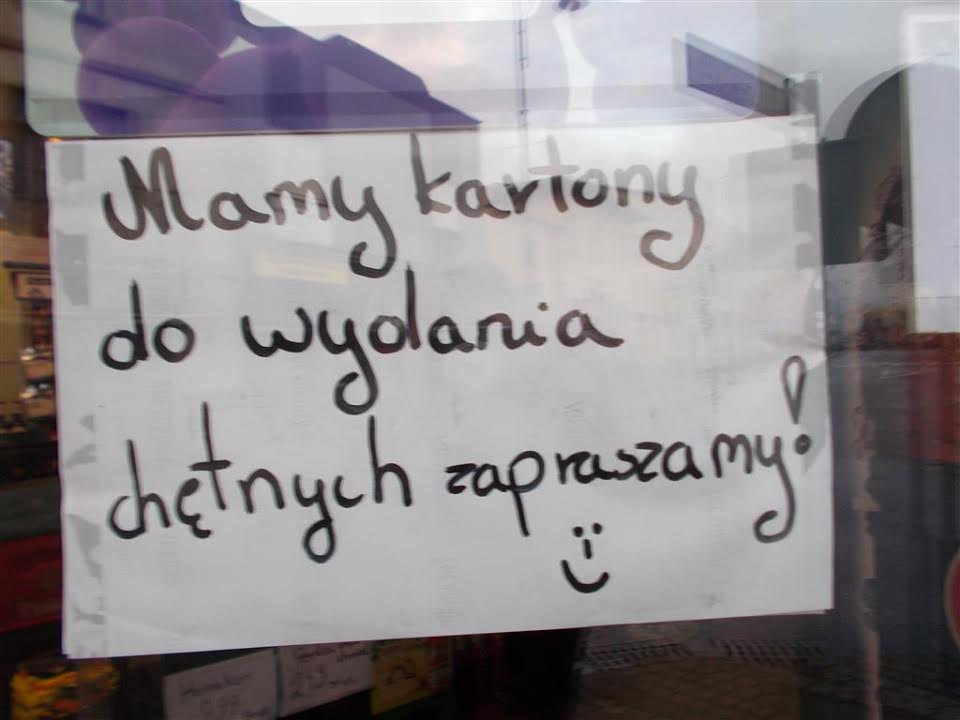 Mamy kartony
do wydania
chętnych zapraszamy!